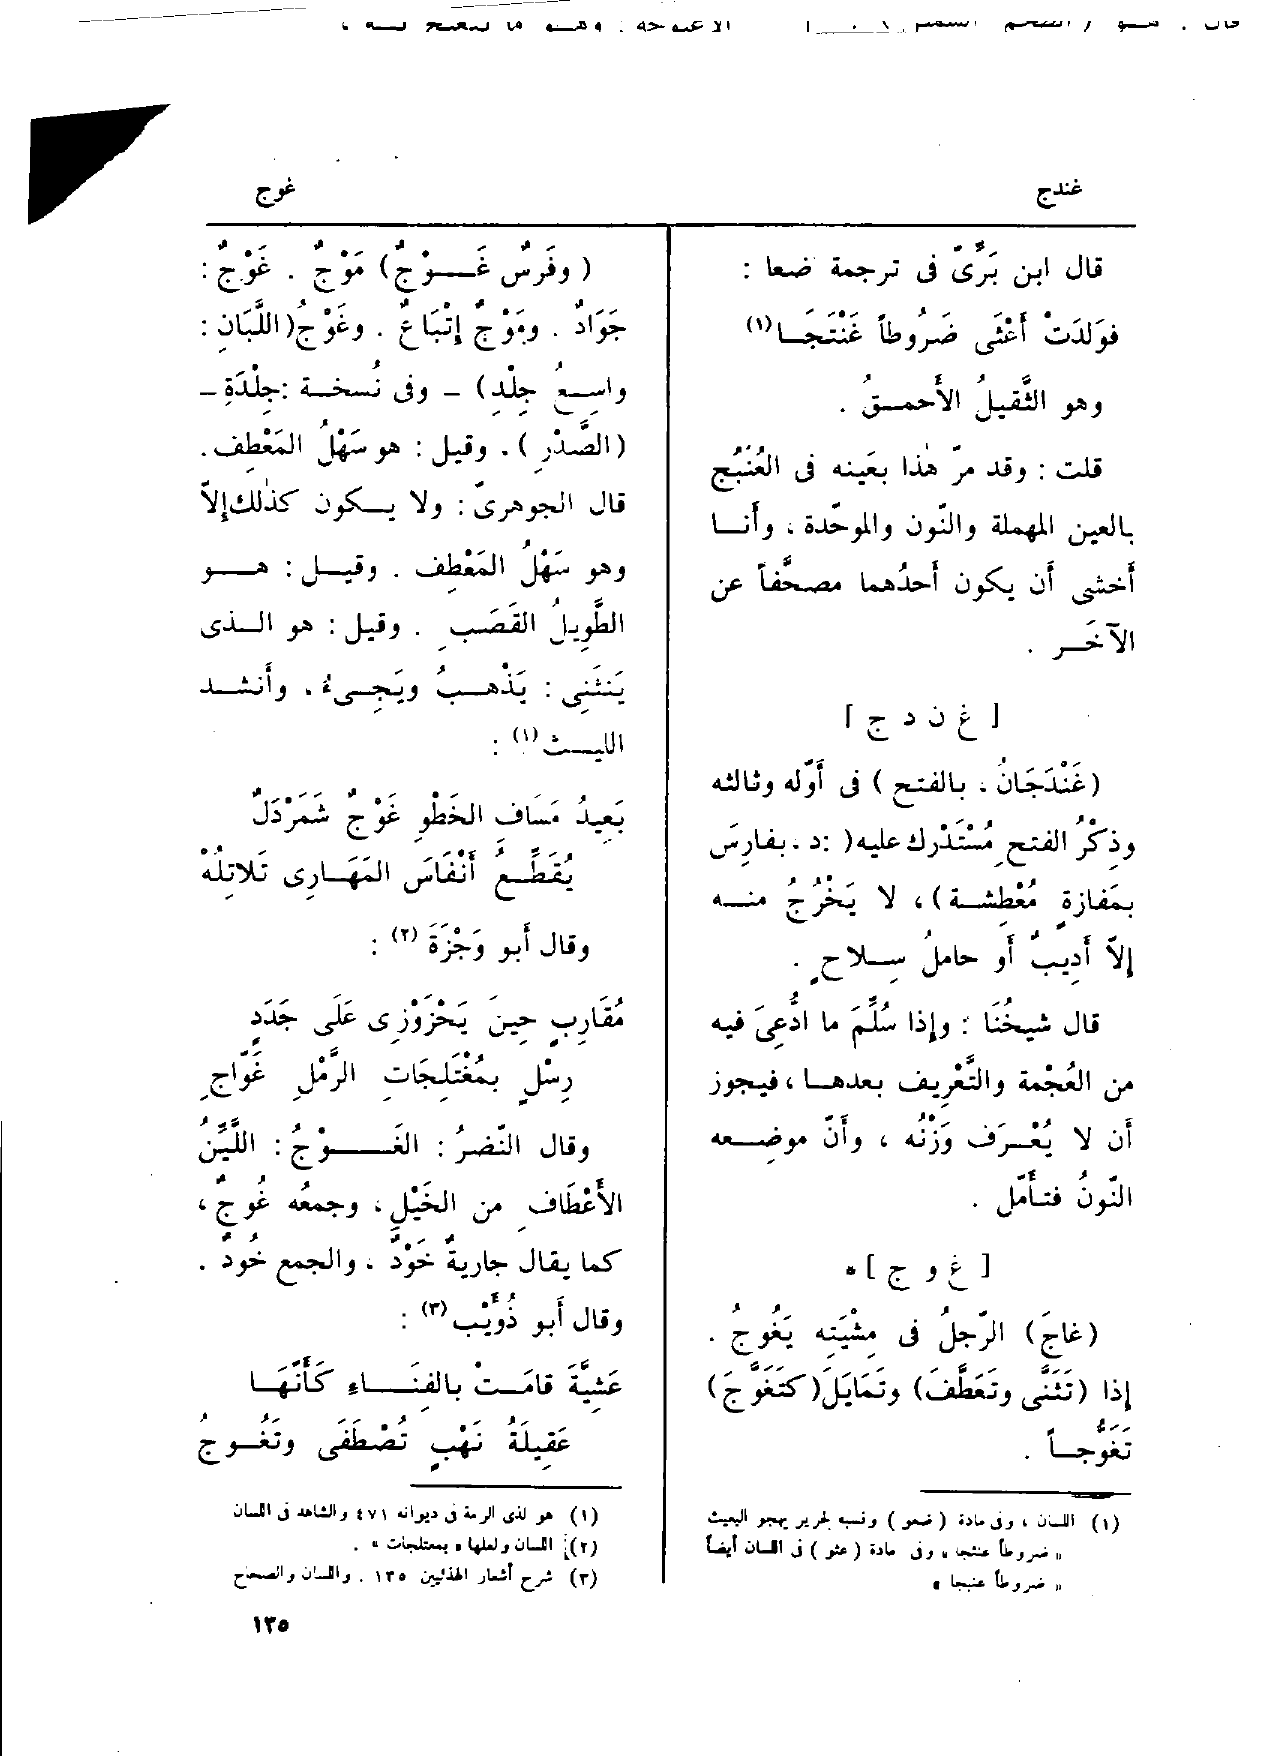 غندج
غوج
قال ابن بَرّىّ فى ترجمة ضعا :
فوَلَدَتْ أَعْثَى ضَرُوطاً غَنْتَجَا (١)
وهو الثَّقيلُ الأَحمقُ .
قلت : وقد مرّ هٰذا بعَينه فى العُنْبُج
بالعين المهملة والنّون والموحّدة ، وأَنا
أَخشى أَن يكون أَحدُهما مصحَّفاً عن
الآخَر .
[ غ ن د ج ]
(غَنْدَجَانُ ، بالفتح ) فى أَوّله وثالثه
وذِكْرُ الفتحِ مُسْتَدْرك عليه( :د . بفارِسَ
بمَفازةٍ مُعْطِشة) ، لا يَخْرُجُ منه
إلاّ أَديبٌ أَو حاملُ سِلاحٍ .
قال شيخُنَا : وإذا سُلِّمَ ما ادُّعِىَ فيه
من العُجْمة والتَّعْرِيف بعدها ، فيجوز
أن لا يُعْرَف وَزْنُه ، وأَنّ موضِعه
النّونُ فتأَمّل .
[ غ و ج ] *
(غاجَ) الرّجلُ فى مِشْيَتِه يَغُوجُ .
إذا (تَثَنَّى وتَعَطَّفَ) وتَمَايَلَ (كتَغَوَّجَ)
تَغَوُّجاً .
(١) اللسان ، وفى مادة (ضعو) ونسب لجرير يهجو البعيث
« ضروطاً عنثجا ، وفى مادة ( عثو ) فى اللسان أيضاً
« ضروطاً عنبجا »
( وفَرسٌ غَوْجٌ) مَوْجٌ . غَوْجٌ :
جَوَادٌ . ومَوْجٌ إتْبَاعٌ . وغَوْجُ (اللَّبَانِ :
واسِعُ جِلْدِ) – وفى نُسخة :جِلْدَةِ –
(الصَّدْرِ ) . وقيل : هو سَهْلُ المَعْطِف .
قال الجوهرىّ : ولا يكون كذٰلك إلاّ
وهو سَهْلُ المَعْطِف . وقيل : هو
الطَّوِيلُ القَصَبِ . وقيل : هو الذى
يَنثَنِى : يَذْهبُ ويَجِىءُ . وأَنشد
الليث (١) :
بَعِيدُ مَسَافِ الخَطْوِ غَوْجٌ شَمَرْدَلٌ
يُقَطِّعُ أَنْفَاسَ المَهَارِى تَلاتِلُهْ
وقال أَبو وَجْزَةَ (٢) :
مُقَارِبٍ حِينَ يَحْزَوْزِى عَلَى جَدَدٍ
رِسْلٍ بمُغْتَلِجَاتِ الرَّمْلِ غَوَّاجِ
وقال النّضرُ : الغَوْجُ : اللَّيِّنُ
الأَعْطَافِ من الخَيْلِ ، وجمعُه غُوجٌ ،
كما يقال جاريةٌ خَوْدٌ ، والجمع خُودٌ .
وقال أَبو ذُوَيْب (٣) :
عَشِيَّةَ قامَتْ بالفِنَاءِ كَأَنَّهَا
عَقِيلَةُ نَهْبٍ تُصْطَفَى وتَغُوجُ
(١) هو لذى الرمة فى ديوانه ٤٧١ والشاهد فى اللسان
(٢) اللسان ولعلها « بمعتلجات » .
(٣) شرح أشعار الهذليين ١٣٥ . واللسان والصحاح
١٣٥